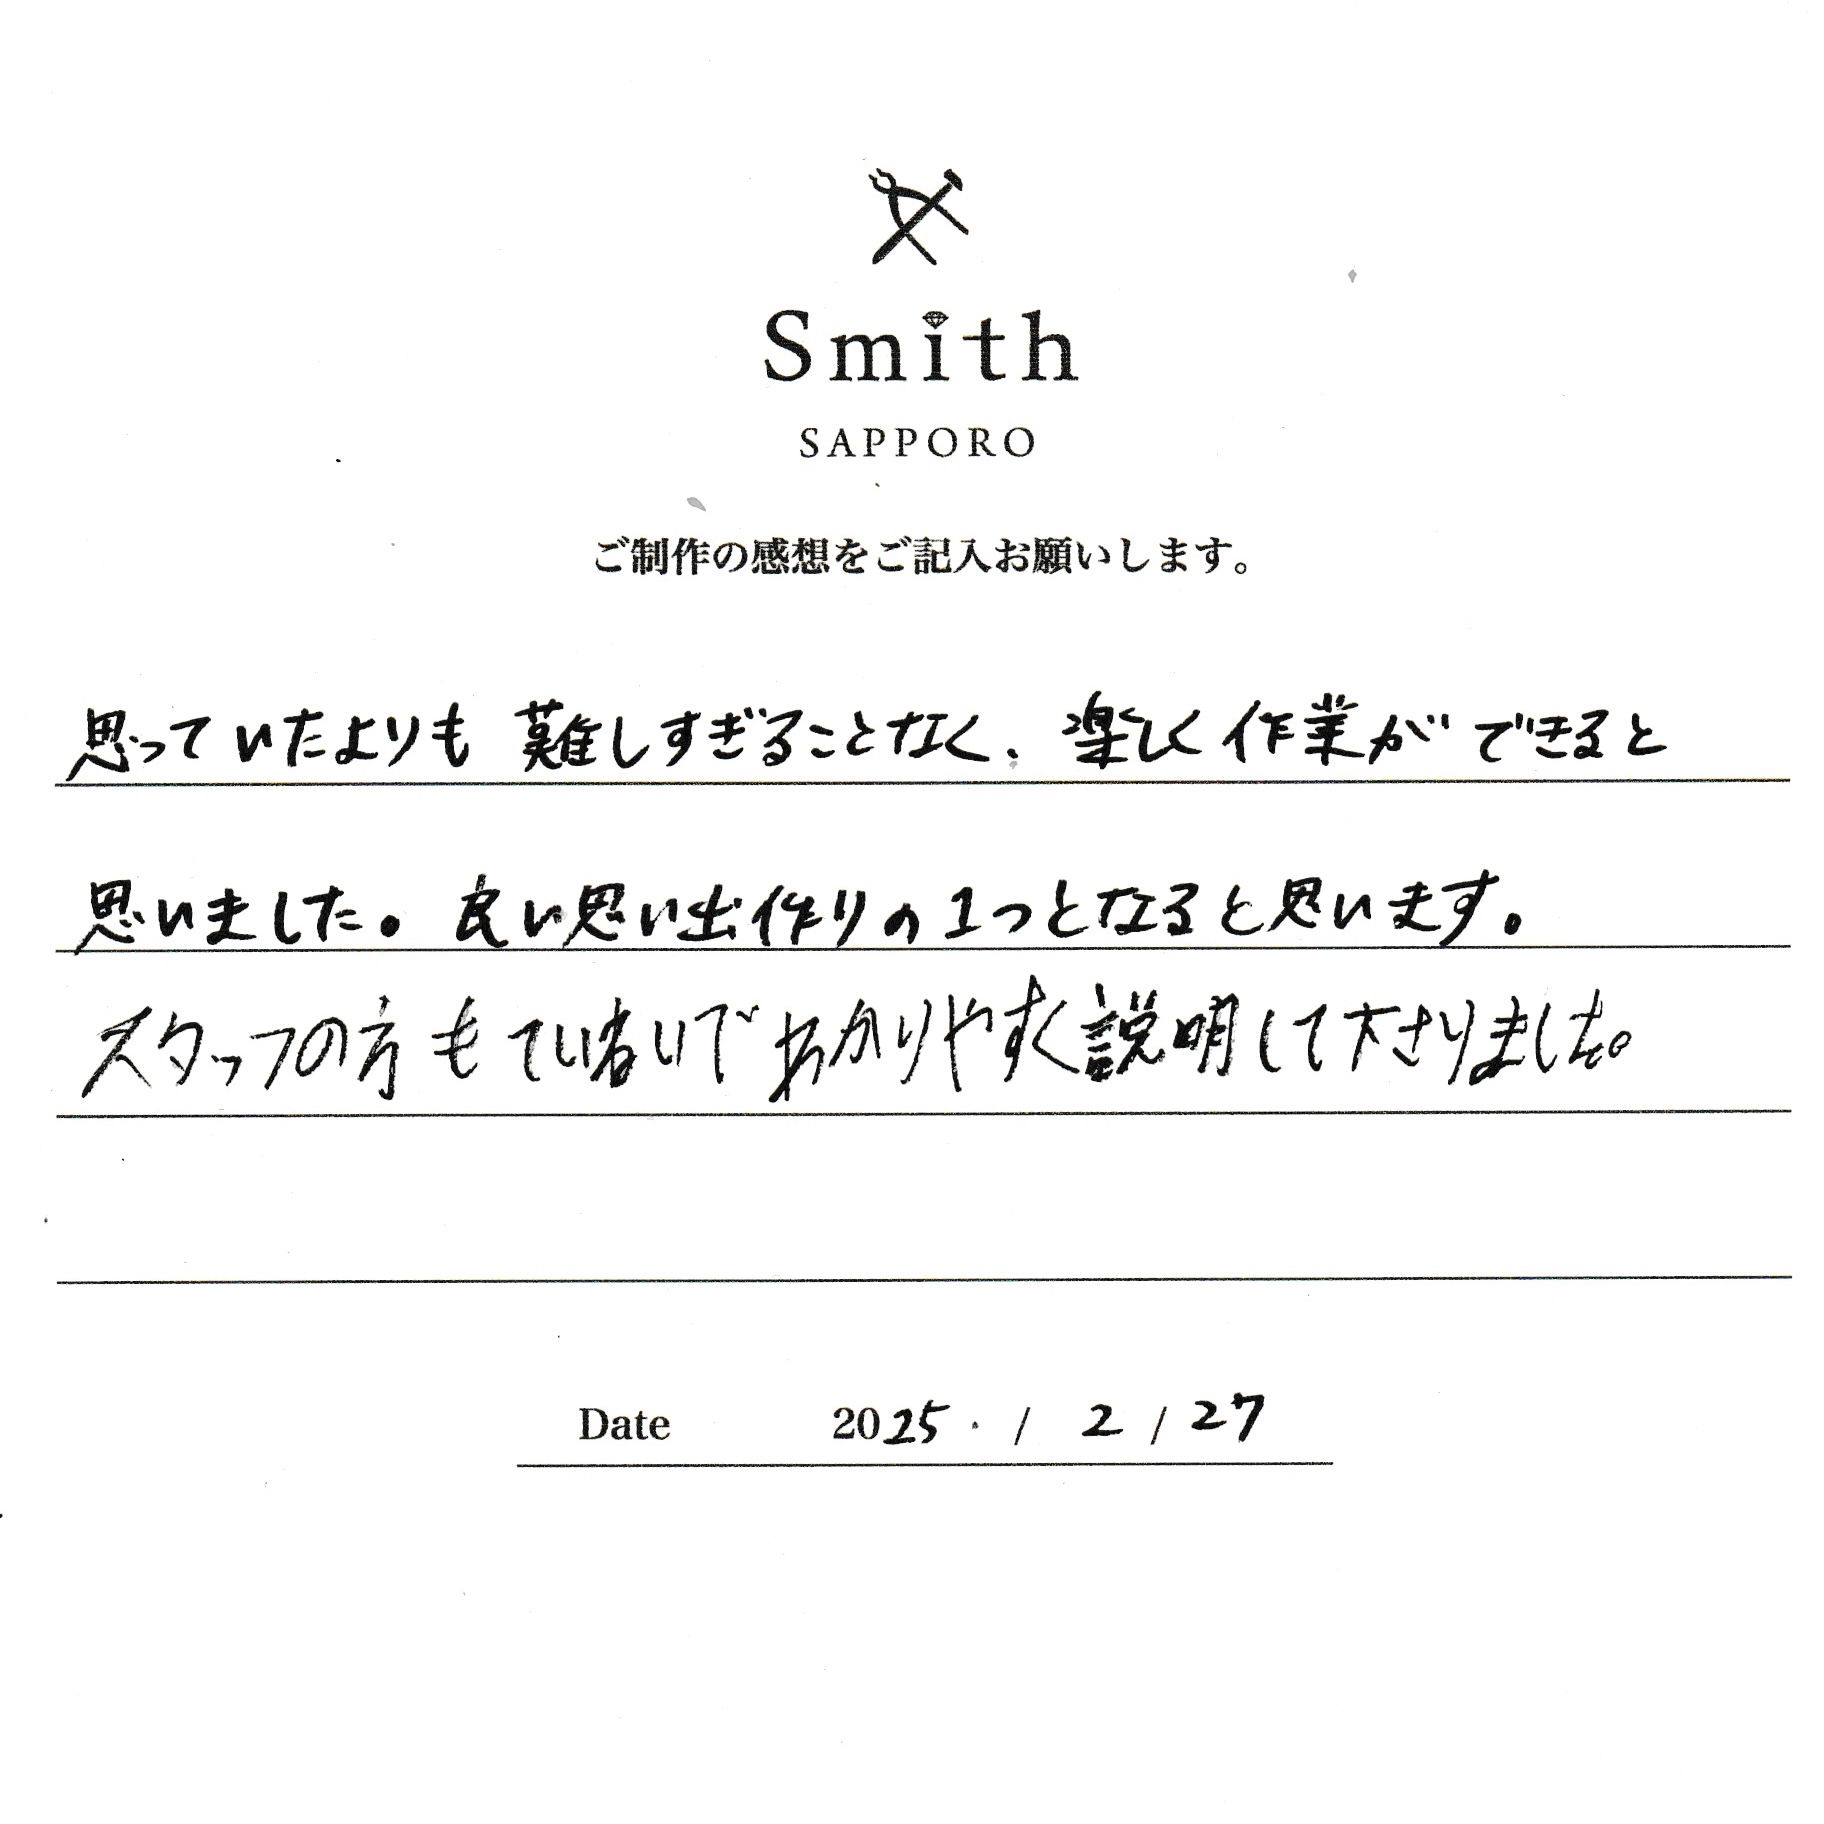 Smith
SAPPORO
ご制作の感想をご記入お願いします。
思っていたよりも難しすぎることなく、楽しく作業ができると
思いました。良い思い出作りの1つとなると思います。
スタッフの方もていねいでわかりやすく説明して下さりました。
Date 2025 . / 2 / 27